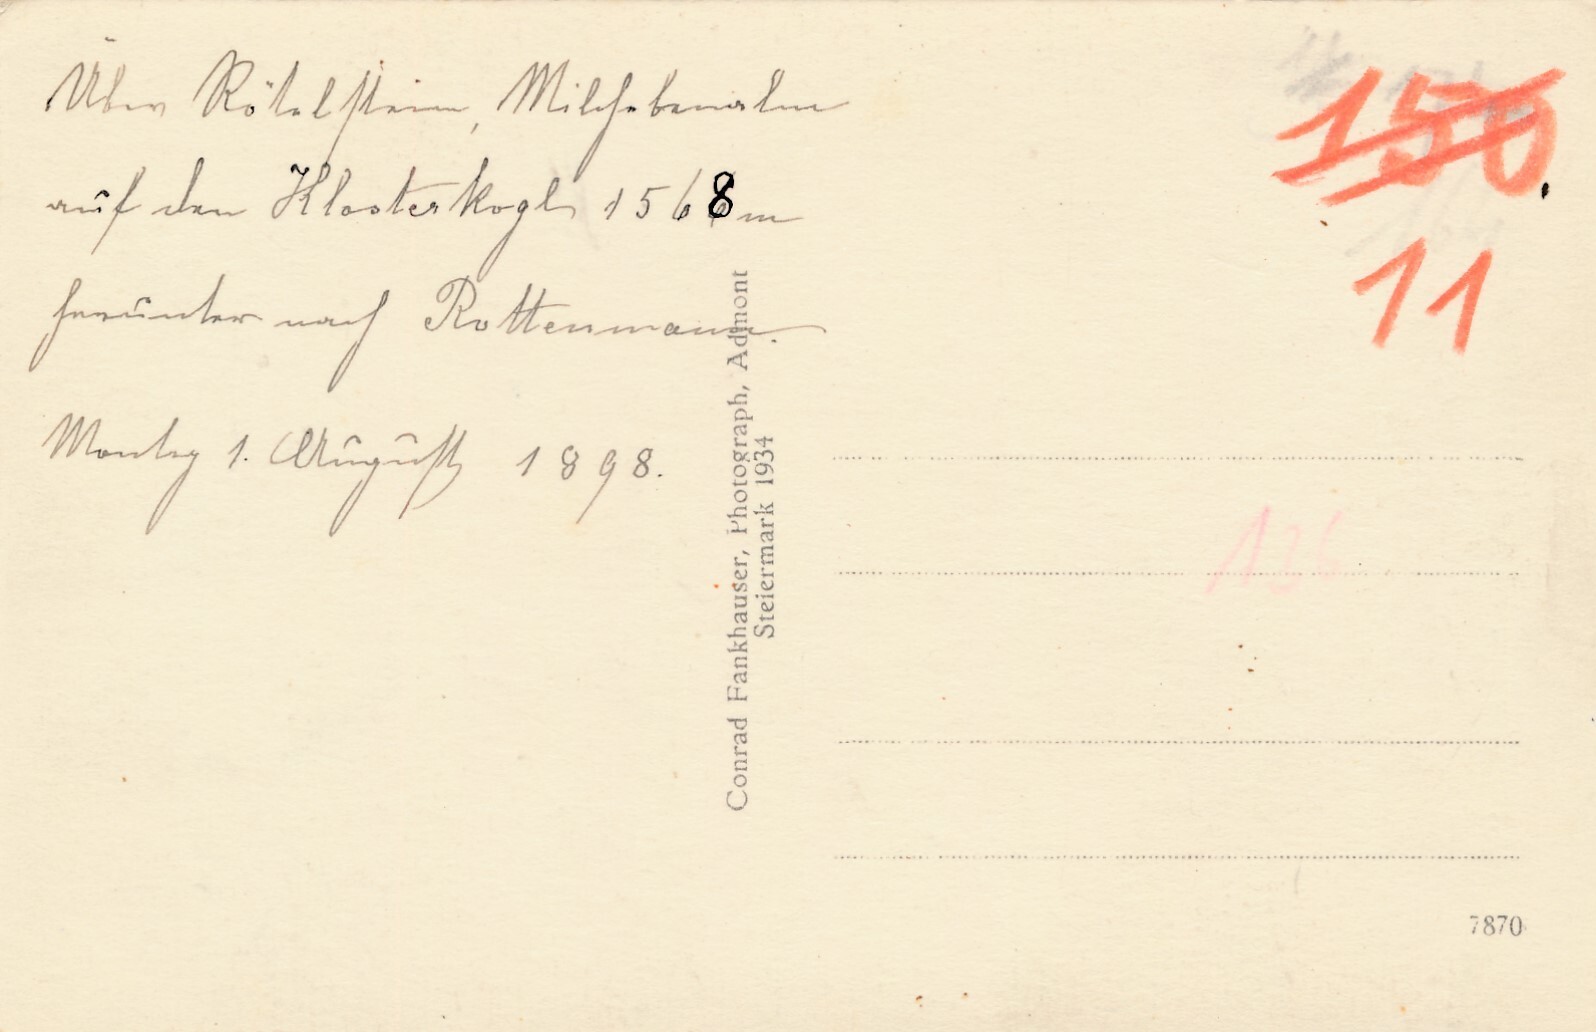 Über Röthelstein, Milchebenalm
auf den Klosterkogl, 1568 m
herunter nach Rottenmann.
Montag 1. August 1898.
Conrad Fankhauser, Photograph, Admont
Steiermark 1934
150.
11
126
7870